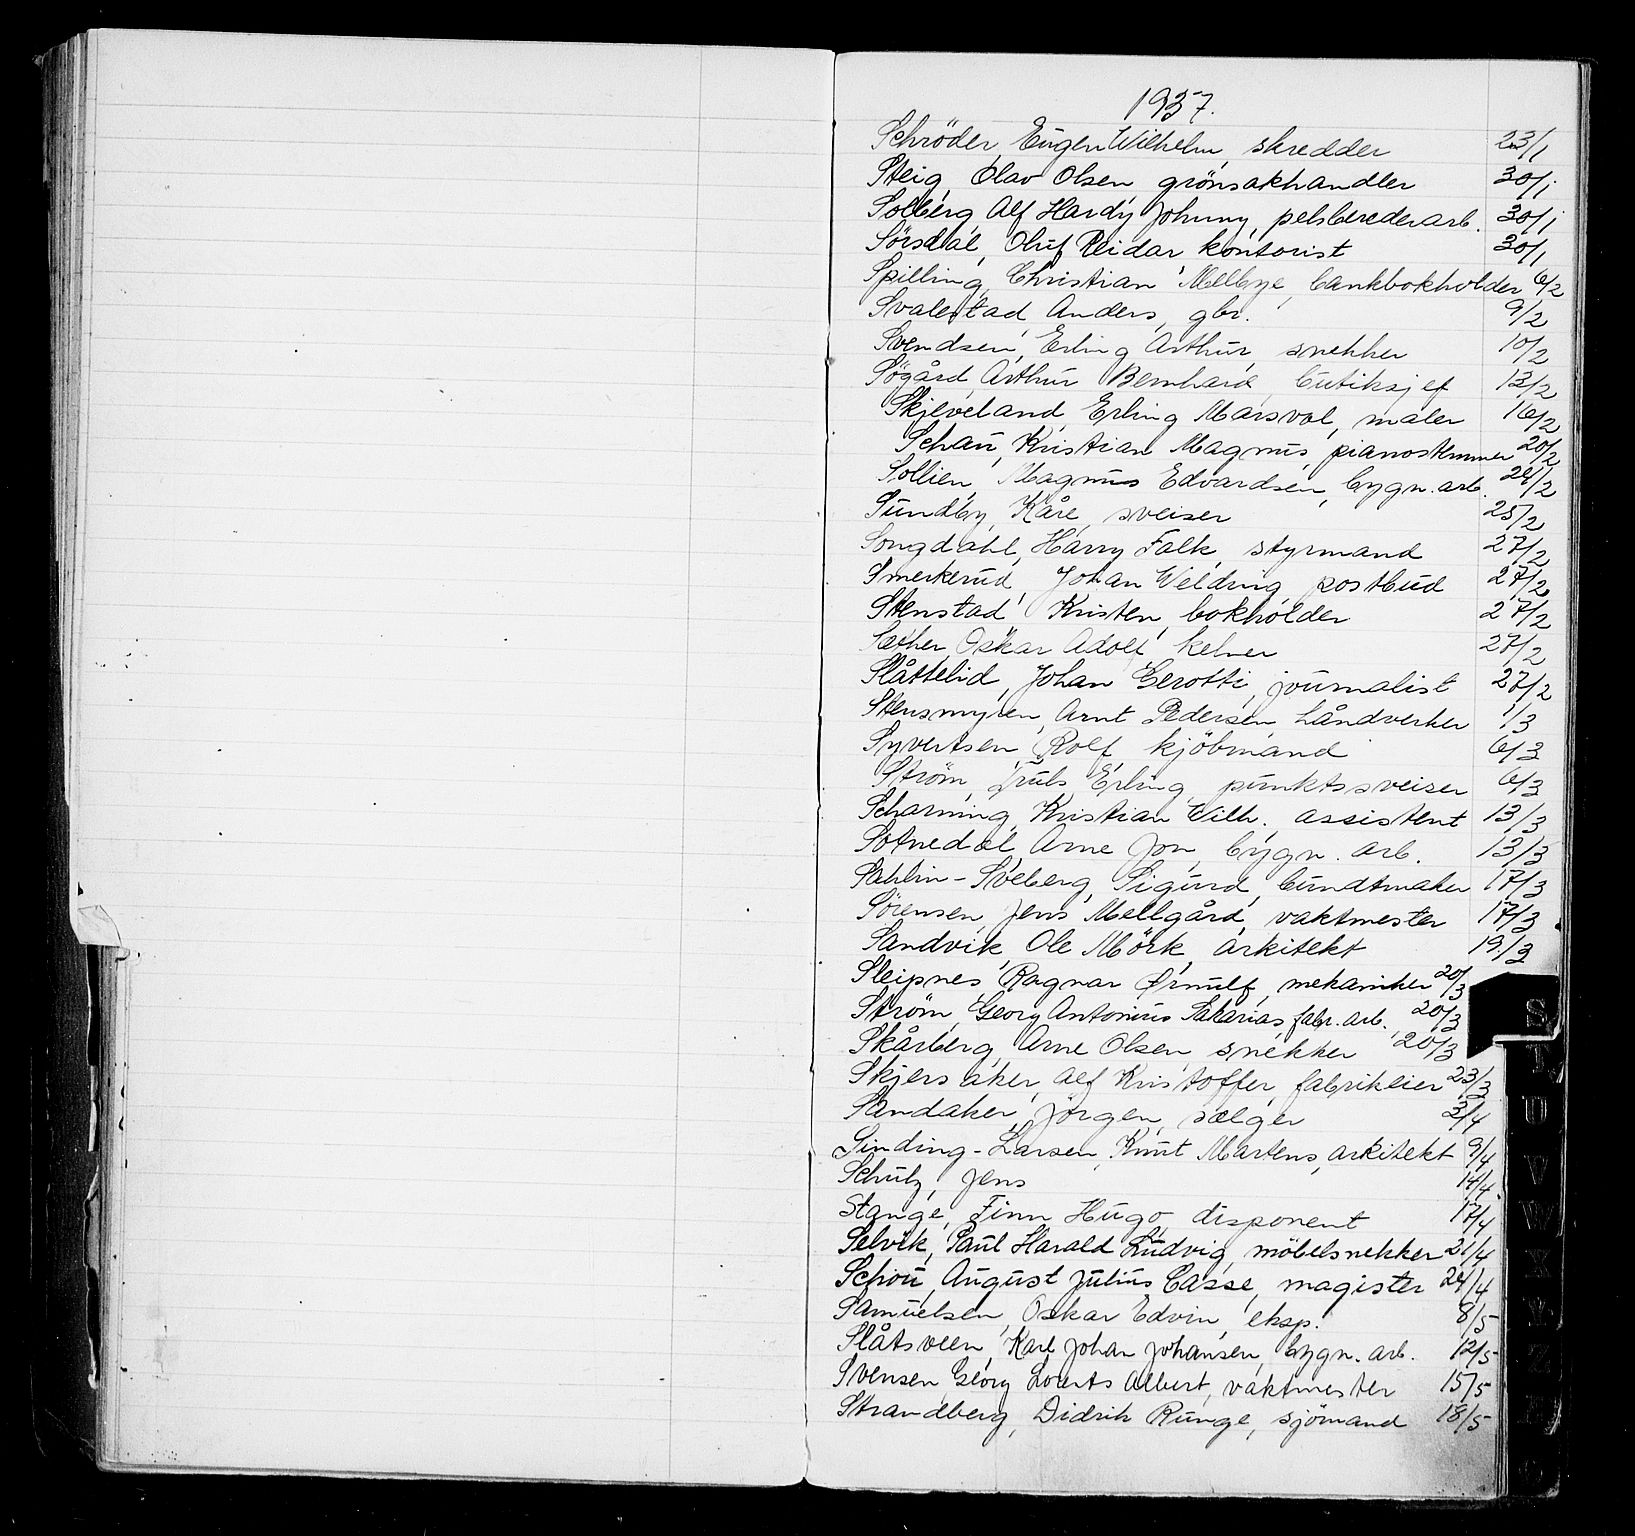 1937.
Schröder, Eugen Wilhelm, skredder 23/1
Steig, Olav Olsen, grönsakhandler 30/1
Solberg, Alf Hardy Johnny, pelsberederarb. 30/1
Sørsdal, Oluf Reidar, kontorist 30/1
Spilling, Christian Melbye, bankbokholder 6/2
Svalestad Anders, gbr. 9/2
Svendsen, Erling Arthur, snekker 10/2
Søgård, Arthur Bernhard, butiksjef 13/2
Skjeveland, Erling Marsvol, maler 16/2
Schau, Kristian Magnus, pianostemmer 20/2
Sollien, Magnus Edvardsen, bygn. arb. 24/2
Sundby, Kåre, sveiser 25/2
Songdahl, Harry Falk, styrmand 27/2
Smerkerud, Johan Weldrig, postbud 27/2
Stenstad, Kristen, bokholder 27/2
Sæther, Oskar Adolf, kelner 27/2
Slåttelid, Johan Gerotti, journalist 27/2
Stensmyren, Arnt Pedersen, håndverker 1/3
Syvertsen, Rolf, kjöbmand 6/3
Ström, Truls Erling, punktssveiser 6/3
Scharning, Kristian Wilh. assistent 13/3
Sotnedal, Arne Jon, bygn. arb. 13/3
Sahlin-Sveberg, Sigurd, bundtmaker 17/3
Sørensen, Jens Mellgård, vaktmester 17/3
Sandvik, Ole Mörk, arkitekt 19/3
Sleipnes, Ragnar Ørnulf, mekaniker 20/3
Strøm, Georg Antonius Sakarias, fabr. arb. 20/3
Skårberg, Arne Olsen, snekker 20/3
Skjersaker, Alf Kristoffer, fabrikeier 23/3
Sandaker, Jörgen, sælger 3/4
Sinding-Larsen, Knut Martens, arkitekt 9/4
Schulz, Jens 14/4
Stange, Finn Hugo, disponent 17/4
Selvik, Paul Harald Ludvig, möbelsnekker 21/4
Schou, August Julius Casse, magister 24/4
Samuelsen, Oskar Edvin, eksp. 8/5
Slåtsveen, Karl Johan Johansen, bygn. arb. 12/5
Svensen, Georg Lorents Albert, vaktmester 15/5
Strandberg, Didrik Runge, sjömand 18/5
S
T
U
V
W
X
Y
Z